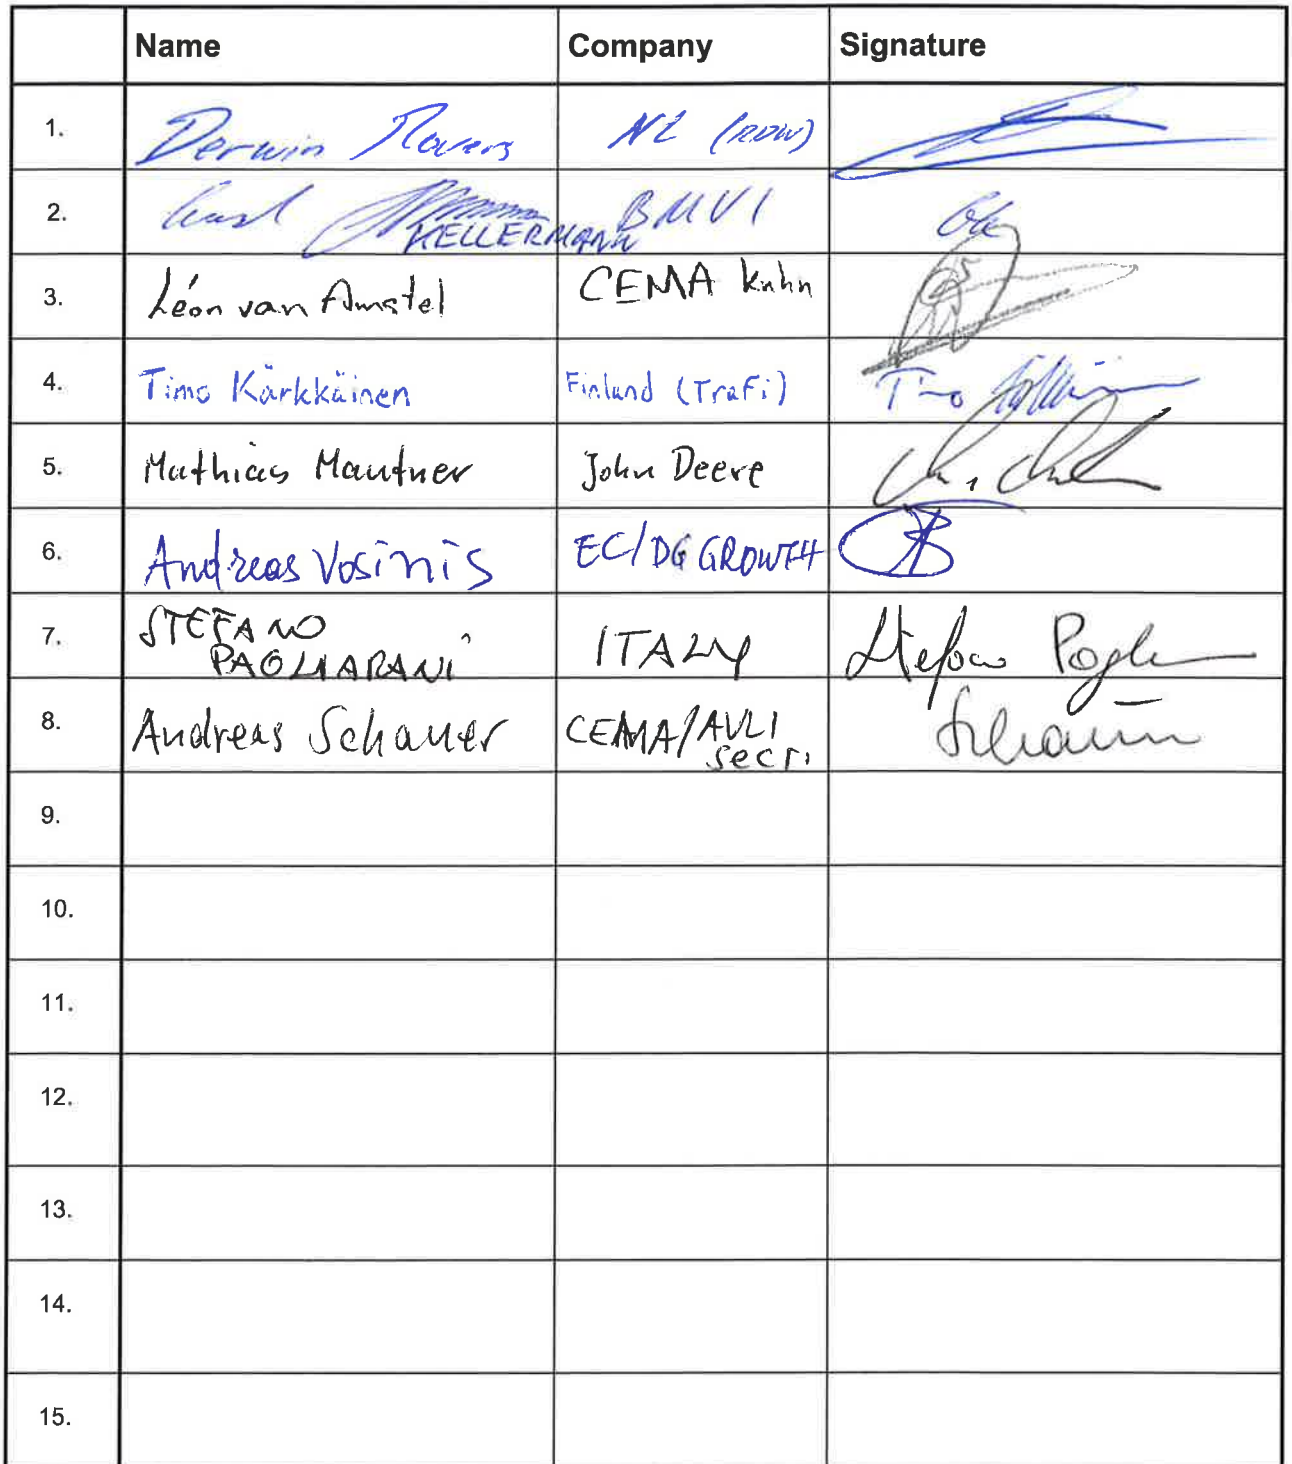 Name Company Signature
1. Derwin Rovers NL (RDW)
2. BMVI
KELLERMANN
3. Léon van Amstel CEMA Kuhn
4. Timo Kärkkäinen Finland (Trafi) Timo
5. Mathias Mautner John Deere
6. Andreas Vosinis EC/DG GROWTH
7. STEFANO
PAGLIARANI ITALY Stefano
8. Andreas Schauer CEMA/AVLI
secr.
9.
10.
11.
12.
13.
14.
15.